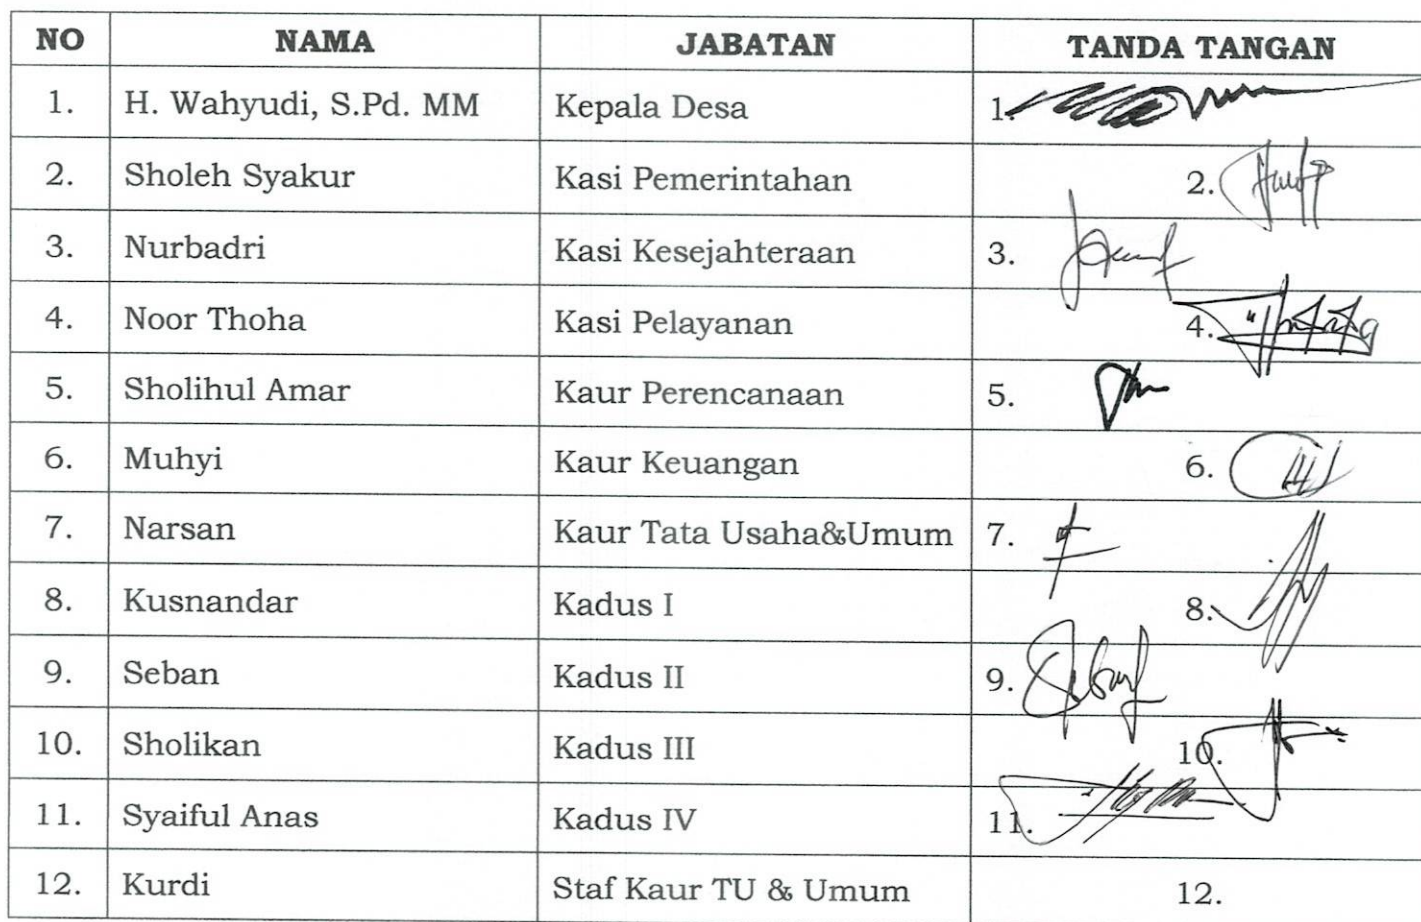 NO NAMA JABATAN TANDA TANGAN
1. H. Wahyudi, S.Pd. MM Kepala Desa 1.
2. Sholeh Syakur Kasi Pemerintahan 2.
3. Nurbadri Kasi Kesejahteraan 3.
4. Noor Thoha Kasi Pelayanan 4.
5. Sholihul Amar Kaur Perencanaan 5.
6. Muhyi Kaur Keuangan 6.
7. Narsan Kaur Tata Usaha&Umum 7.
8. Kusnandar Kadus I 8.
9. Seban Kadus II 9.
10. Sholikan Kadus III 10.
11. Syaiful Anas Kadus IV 11.
12. Kurdi Staf Kaur TU & Umum 12.